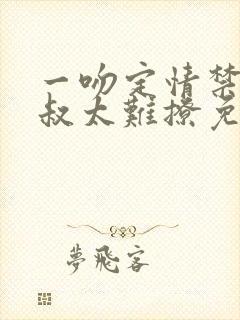 一吻定情禁
叔太難撩免
夢飛客